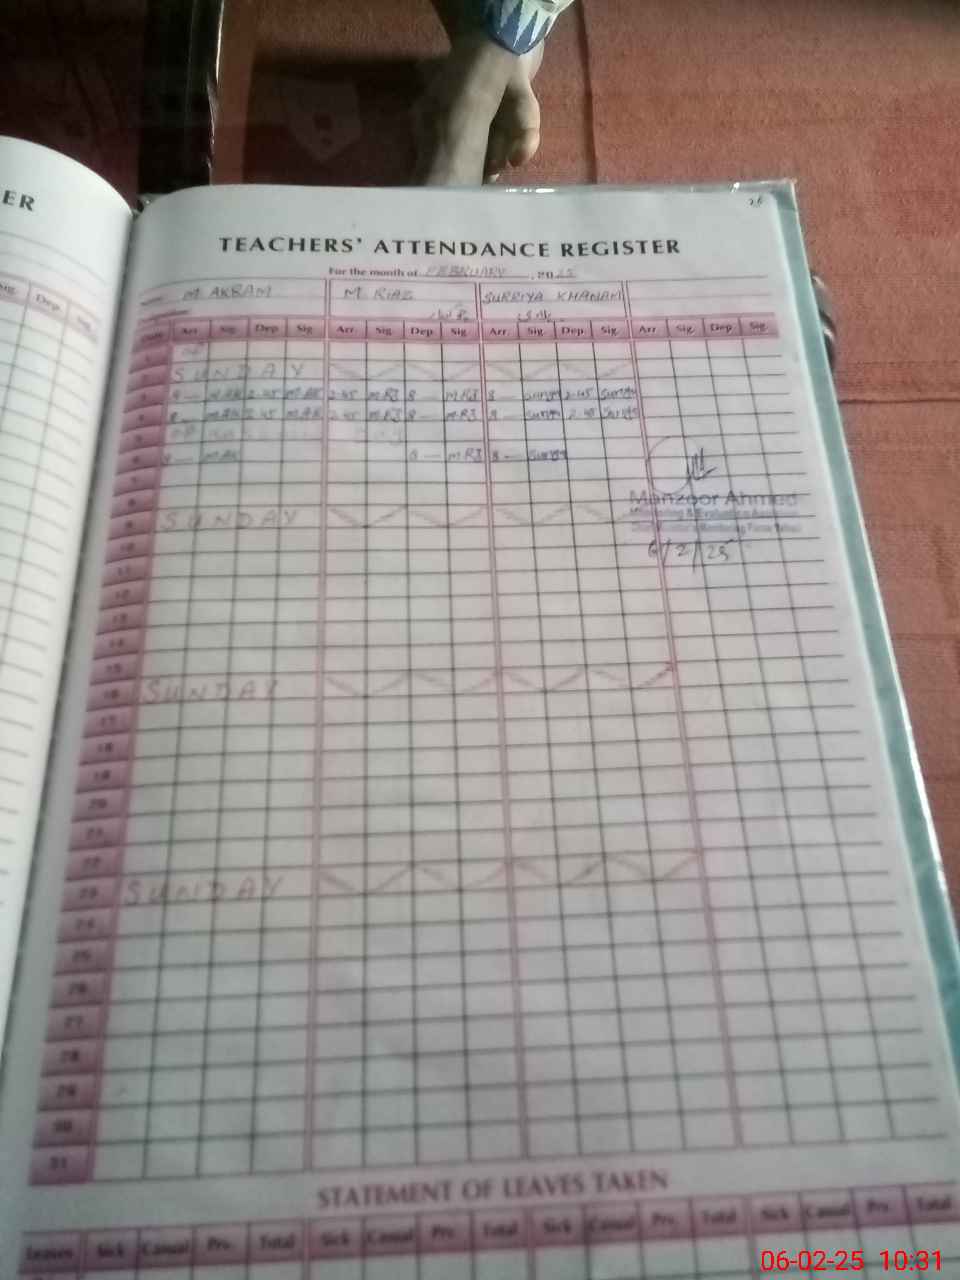 ER
Sig. Dep.
26
TEACHERS' ATTENDANCE REGISTER
For the month of FEBRUARY, 2025
Name M. AKRAM M RIAZ SURRIYA KHANAM
Date Arr. Sig. Dep. Sig. Arr. Sig. Dep. Sig. Arr. Sig. Dep. Sig. Arr. Sig. Dep. Sig.
1
2 SUNDAY
3 8 — MAK 2.45 MAK 2.45 MRI 8 — MRI 8 — 2.45
4 8 — MAK 2.45 MAK 2.45 MRI 8 — MRI 8 — 2.45
5
6 8 — MAK 8 — MRI 8 —
7
8
9 SUNDAY
Manzoor Ahmed
Monitoring & Evaluation
6/2/25
10
11
12
13
14
15
16 SUNDAY
17
18
19
20
21
22
23 SUNDAY
24
25
26
27
28
29
30
31
STATEMENT OF LEAVES TAKEN
Leaves Sick Casual Prv. Total Sick Casual Prv. Total Sick Casual Prv. Total Sick Casual Prv. Total
06-02-25 10:31